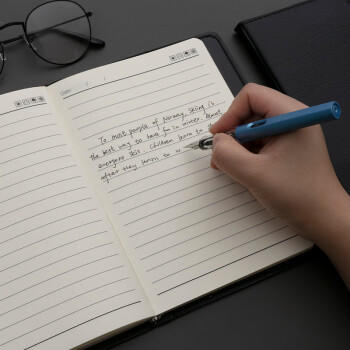 To most people of Norway, skiing is
the best way to have fun in winter. Almost
everyone skis. Children learn to
after they learn to w